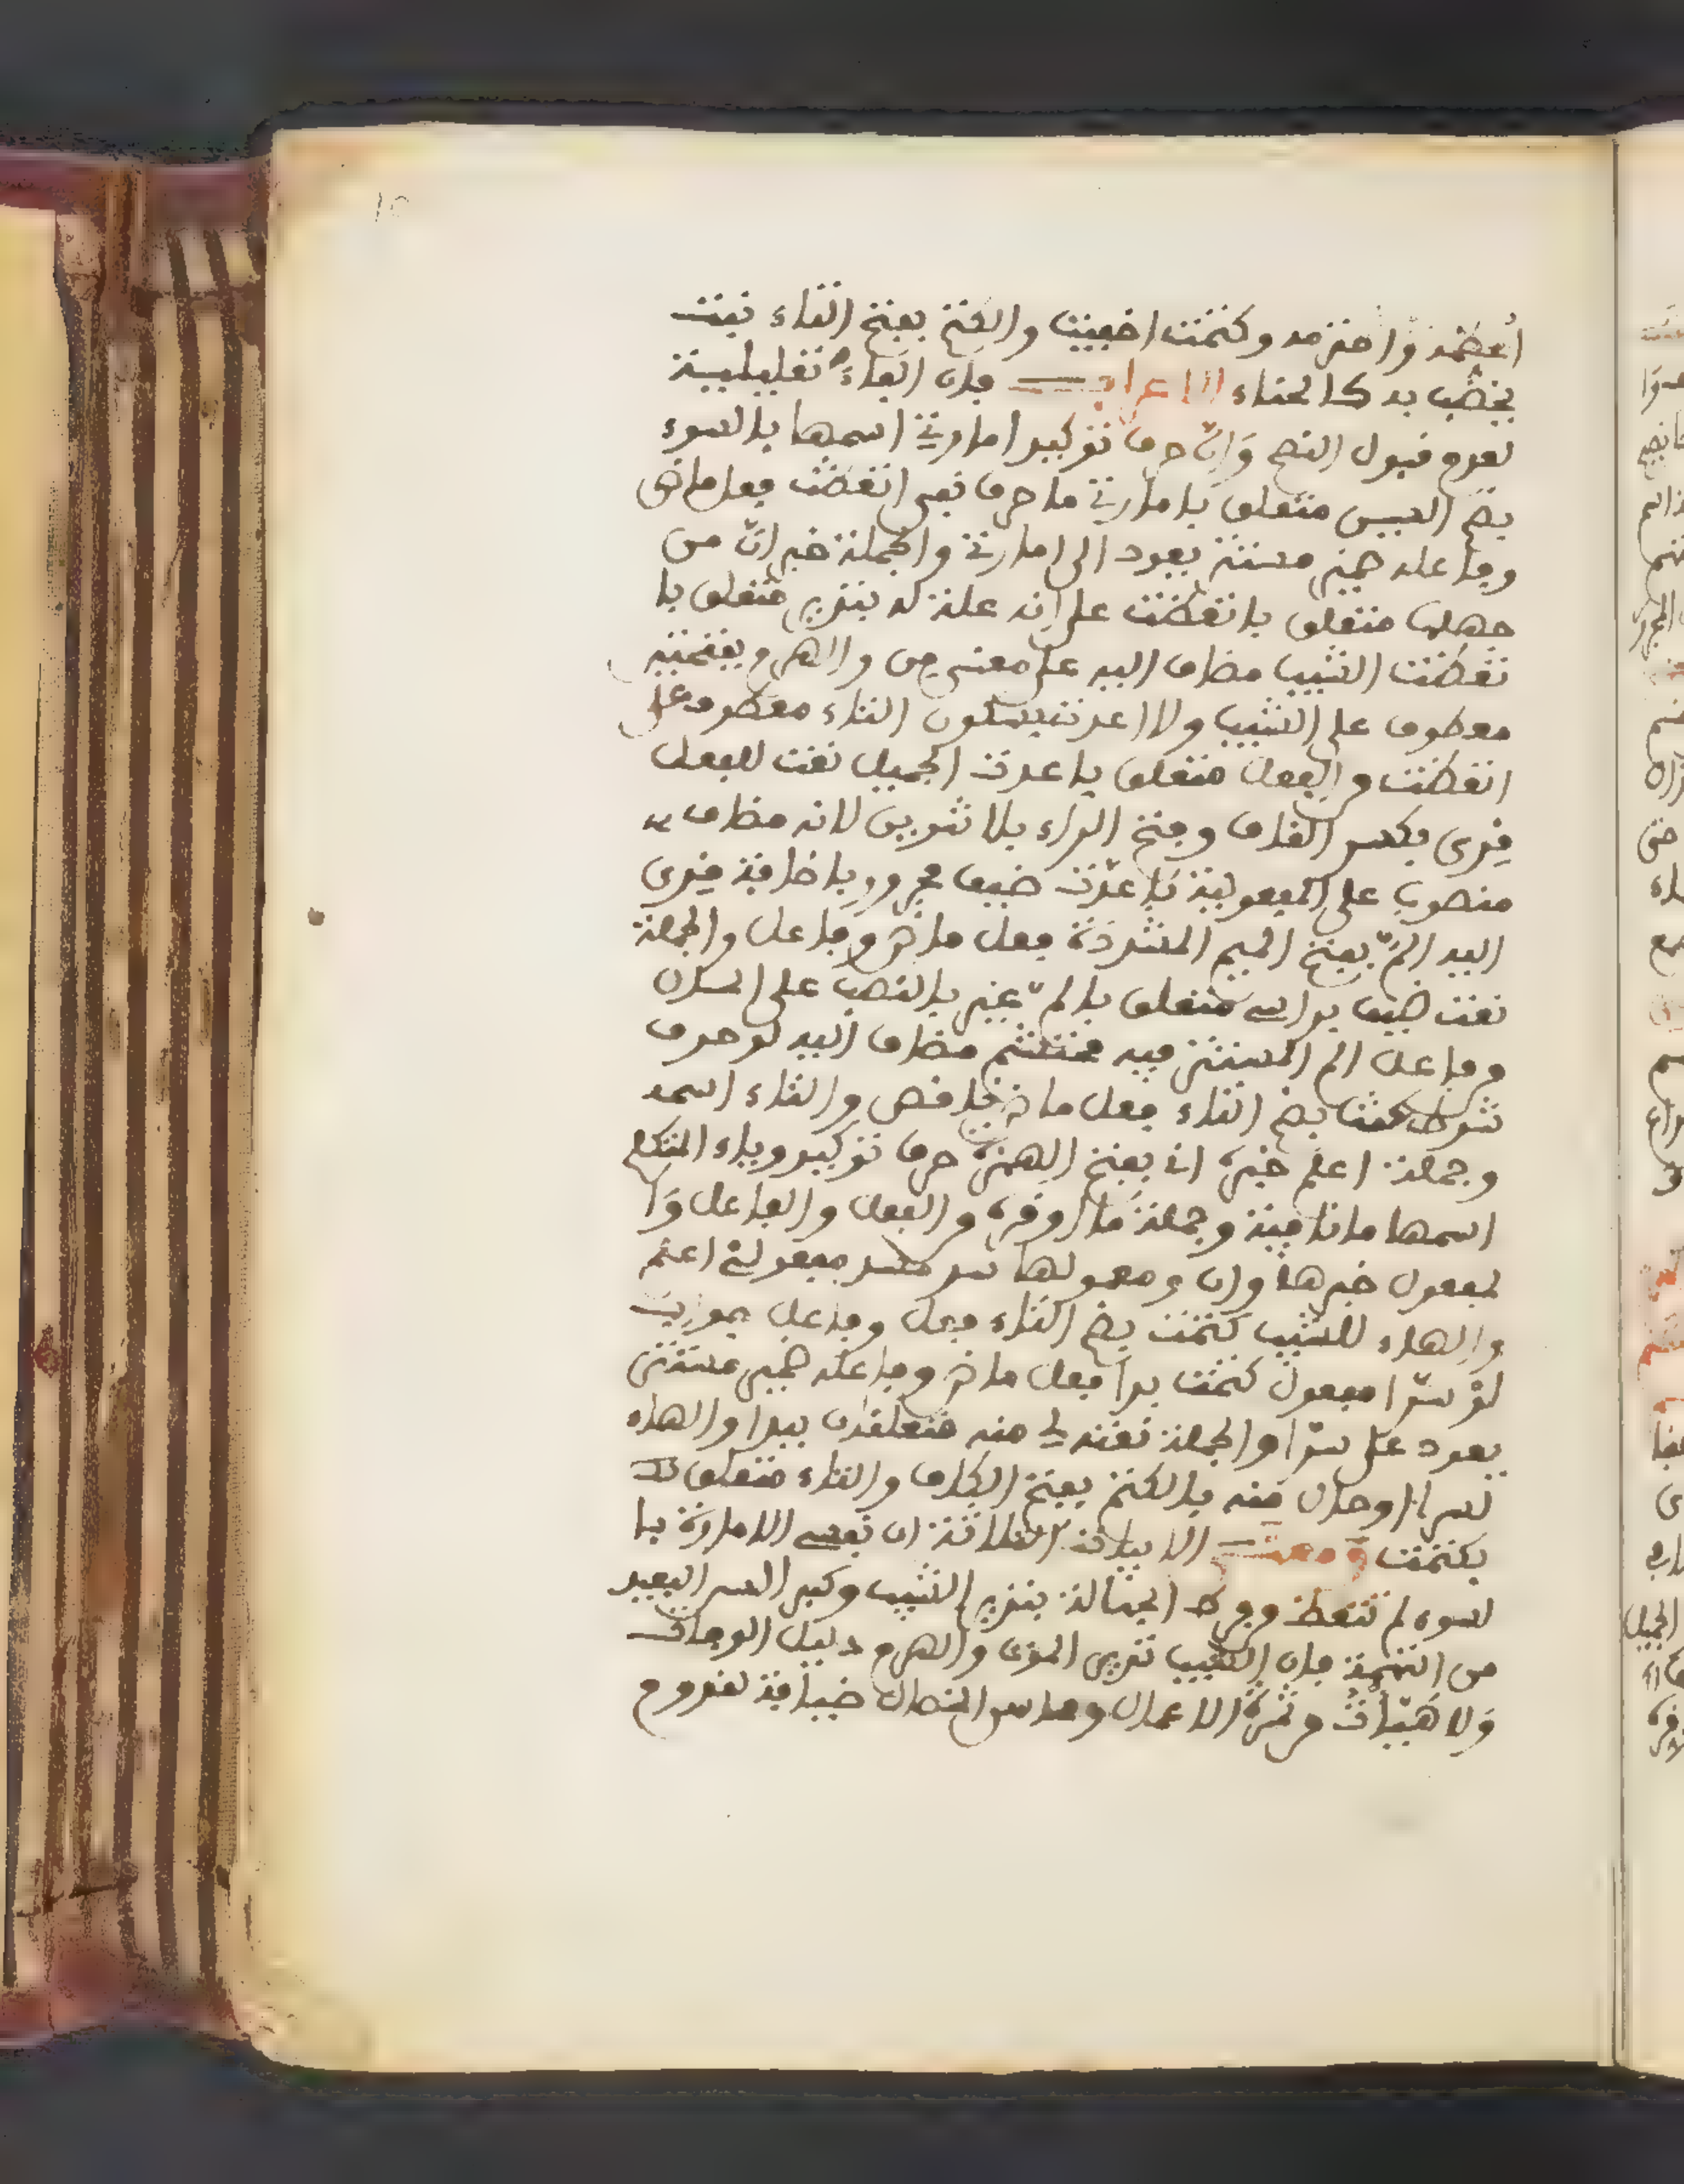 10
أعظمه واحترمه وكتمت اخفيت والكتم بفتح التاء نبت
يخضب به كالحناء الاعراب فان الفاء تعليلية
لعدم قبول النصح وَإنّ حرف توكيد امارتي اسمها بالسوء
بضم السين متعلق بامارتي ما حرف نفي اتعظت فعل ماض
وفاعله ضمير مستتر يعود الى امارتي والجملة خبر انّ من
جهلها متعلق باتعظت على انه علة له بنذير متعلق با
تعظت الشيب مضاف اليه على معنى من والهرم بفتحتين
معطوف على الشيب ولا اعدت بسكون التاء معطوف على
اتعظت والفعل متعلق باعدت الجميل نعت للفعل
قِرى بكسر القاف وفتح الراء بلا تنوين لانه مضاف
منصوب على المفعولية باعدّت ضيف مجرور باضافة قِرى
اليه المّ بفتح الميم المشددة فعل ماض وفاعل والجملة
نعت ضيف براسي متعلق بالمّ غير بالنصب على الحال
وفاعل الم المستتر فيه محتشم مضاف اليه لو حرف
شرط كنت بضم التاء فعل ماض ناقص والتاء اسمه
وجملة اعلم خبره اني بفتح الهمزة حرف توكيد وياء المتكلم
اسمها ما نافية وجملة ما اوقره والفعل والفاعل وَا
لمفعول خبرها وان ومعمولها سد مسد مفعولي اعلم
والهاء للشيب كتمت بضم التاء فعل وفاعل جواب
لوْ سرّا مفعول كتمت بدا فعل ماض وفاعله ضمير مستتر
يعود على سرّا والجملة نعته لي منه متعلقان ببدا والهاء
لسرا او حال منه بالكتم بفتح الكاف والتاء متعلق
بكتمت ومعنى الابيات الثلاثة ان نفسي الامارة با
لسوء لم تتعظ وفرط الجهالة بنذير الشيب وكبر السن البعيد
من التهمة فان الشيب نذير الموت والهرم دليل الوفاة
وَلا هَيّأتْ وثمرة الاعمال ومحاسن الخصال ضيافة لقدوم